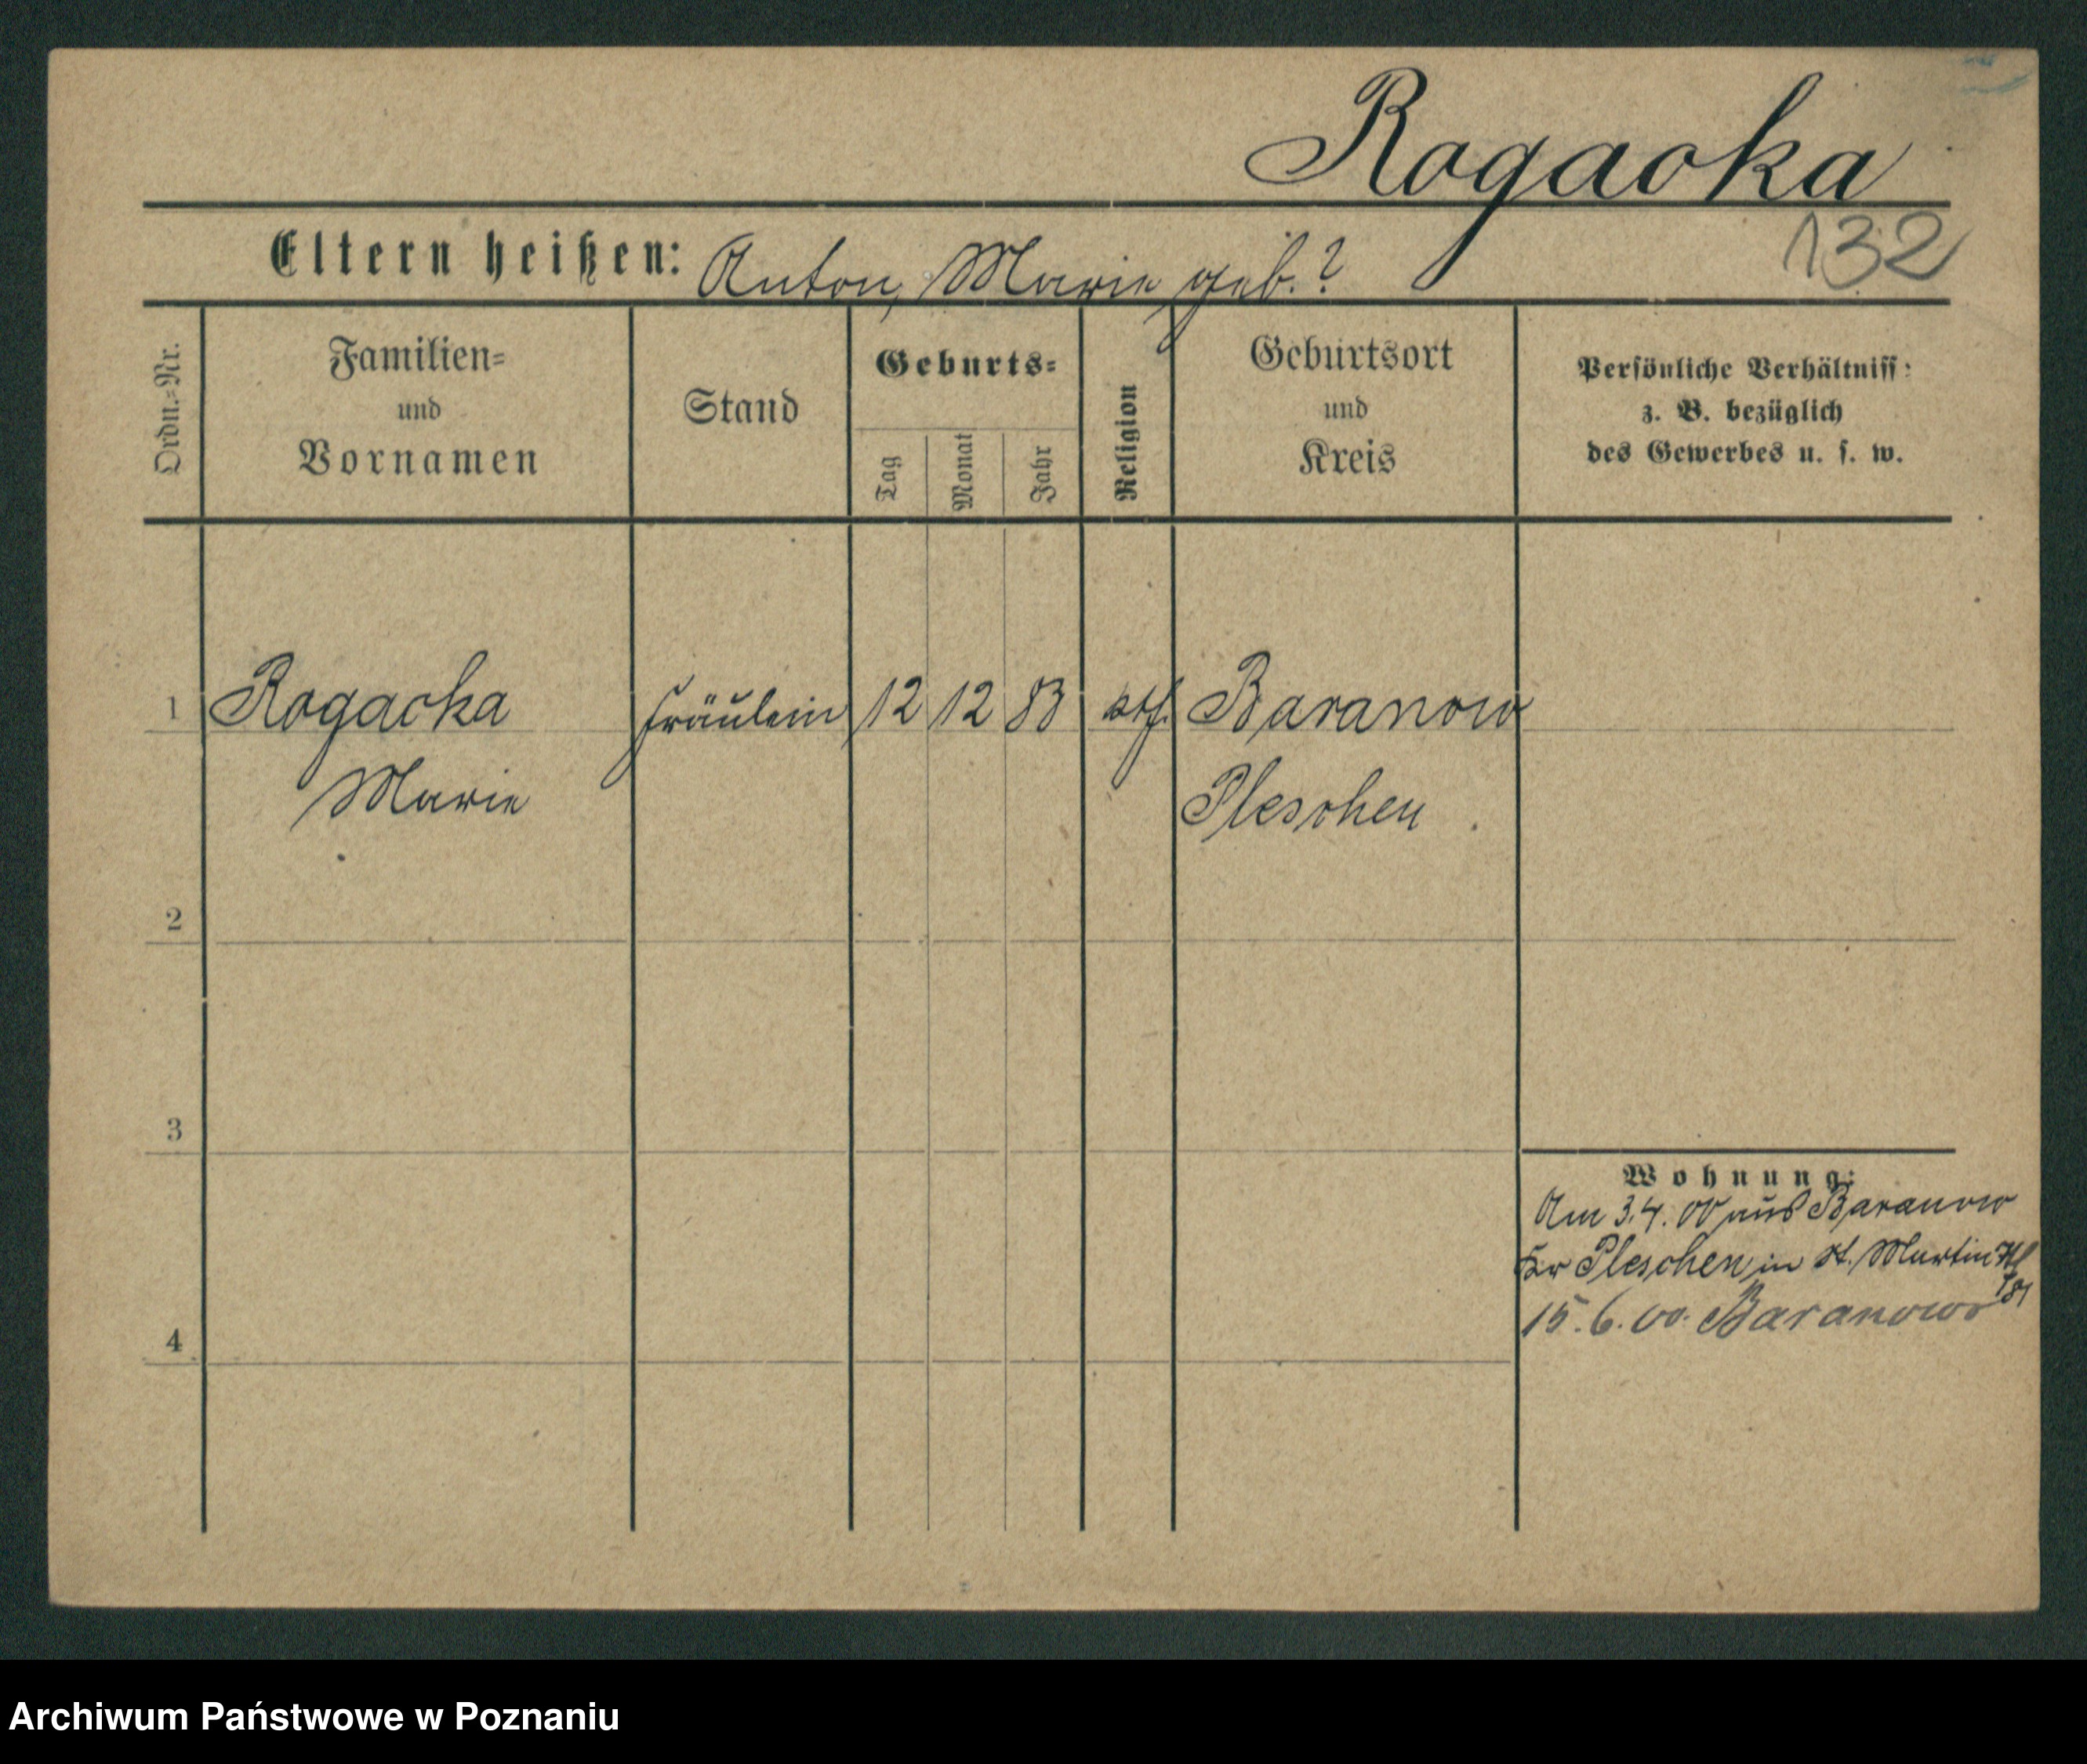 Rogacka
132
Eltern heißen: Anton, Marie geb. ?
Ordn.=Nr.
Familien=
und
Vornamen
Stand
Geburts=
Tag
Monat
Jahr
Religion
Geburtsort
und
Kreis
Persönliche Verhältniss:
z. B. bezüglich
des Gewerbes u. s. w.
1 Rogacka Fräulein 12 12 83 kth. Baranow
Marie Pleschen
2
3
Wohnung:
Am 3.4.00 aus Baranow
Kr Pleschen in St. Martin
15.6.00. Baranowo
4
Archiwum Państwowe w Poznaniu